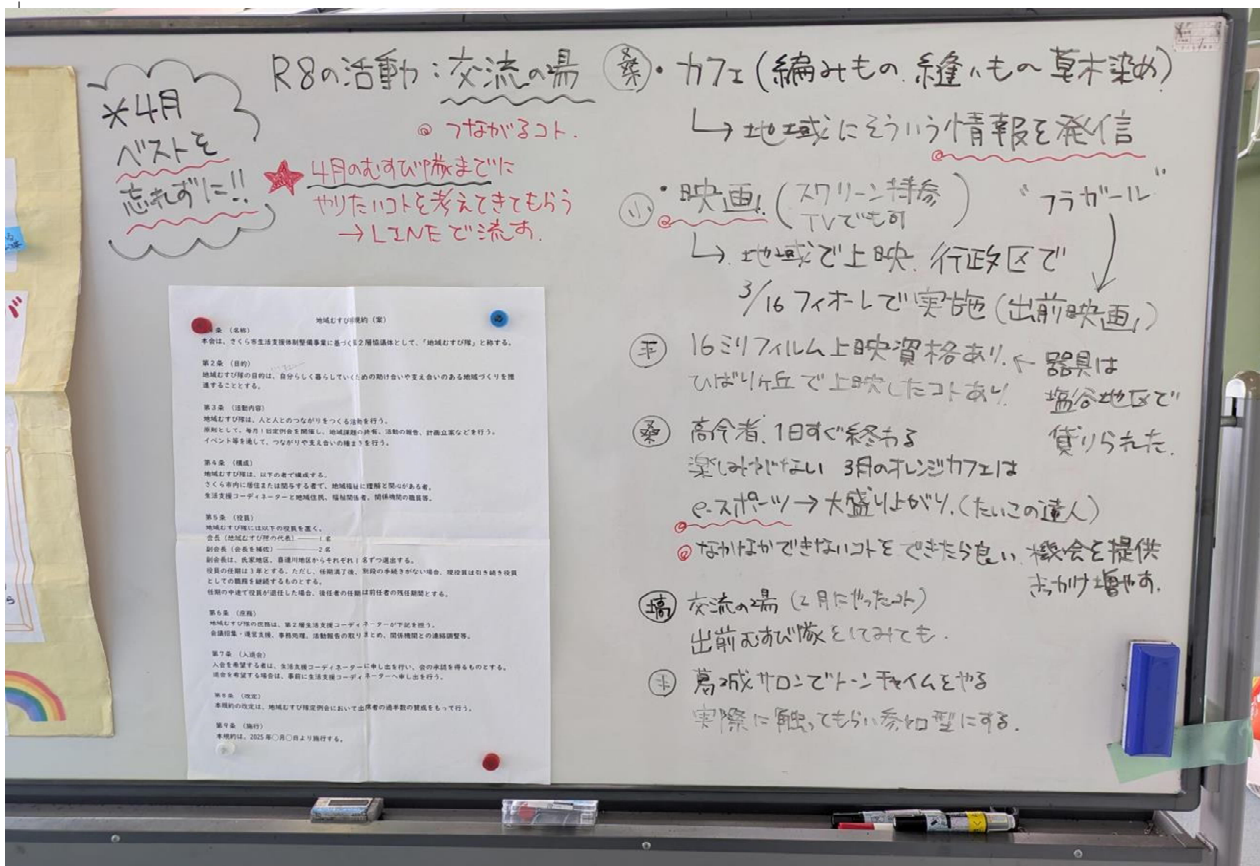 *4月
ベストを
忘れずに!!
R8の活動:交流の場
◎つながるコト.
★4月のむすび隊までに
やりたいコトを考えてきてもらう
→LINEで流す.
桑・カフェ(編みもの.縫いもの 草木染め)
↳地域にそういう情報を発信
小・映画!(スクリーン持参 TVでも可) "フラガール"
↳地域で上映.行政区で
3/16フィオーレで実施(出前映画!)
平 16ミリフィルム上映資格あり.←器具は
ひばりヶ丘で上映したコトあり. 塩谷地区で
貸りられた.
桑 高令者.1日すぐ終わる
楽しみがない 3月のオレンジカフェは
e-スポーツ→大盛り上がり.(たいこの達人)
なかなかできないコトをできたら良い.機会を提供
きっかけ増やす.
交流の場(2月にやったコト)
出前むすび隊をしてみても.
葛城サロンでトーンチャイムをやる
実際に触ってもらい参加型にする.
地域むすび隊規約(案)
条 (名称)
本会は、さくら市生活支援体制整備事業に基づく第2層協議体として、「地域むすび隊」と称する。
第2条 (目的)
地域むすび隊の目的は、自分らしく暮らしていくための助け合いや支え合いのある地域づくりを推
進することとする。
第3条 (活動内容)
地域むすび隊は、人と人とのつながりをつくる活動を行う。
原則として、毎月1回定例会を開催し、地域課題の共有、活動の報告、計画立案などを行う。
イベント等を通して、つながりや支え合いの種まきを行う。
第4条 (構成)
地域むすび隊は、以下の者で構成する。
さくら市内に居住または関与する者で、地域福祉に理解と関心がある者。
生活支援コーディネーターと地域住民、福祉関係者、関係機関の職員等。
第5条 (役員)
地域むすび隊には以下の役員を置く。
会長(地域むすび隊の代表)――――1名
副会長(会長を補佐)――――2名
副会長は、氏家地区、喜連川地区からそれぞれ1名ずつ選出する。
役員の任期は1年とする。ただし、任期満了後、別段の手続きがない場合、現役員は引き続き役員
としての職務を継続するものとする。
任期の中途で役員が退任した場合、後任者の任期は前任者の残任期間とする。
第6条 (庶務)
地域むすび隊の庶務は、第2層生活支援コーディネーターが下記を担う。
会議招集・運営支援、事務処理、活動報告の取りまとめ、関係機関との連絡調整等。
第7条 (入退会)
入会を希望する者は、生活支援コーディネーターに申し出を行い、会の承認を得るものとする。
退会を希望する場合は、事前に生活支援コーディネーターへ申し出を行う。
第8条 (改定)
本規約の改定は、地域むすび隊定例会において出席者の過半数の賛成をもって行う。
第9条 (施行)
本規約は、2025年○月○日より施行する。